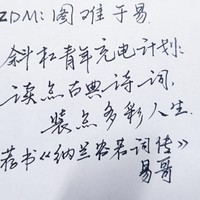 ZDM:图难于易.
斜杠青年充电计划:
读点古典诗词,
装点多彩人生.
荐书《纳兰容若词传》
易哥